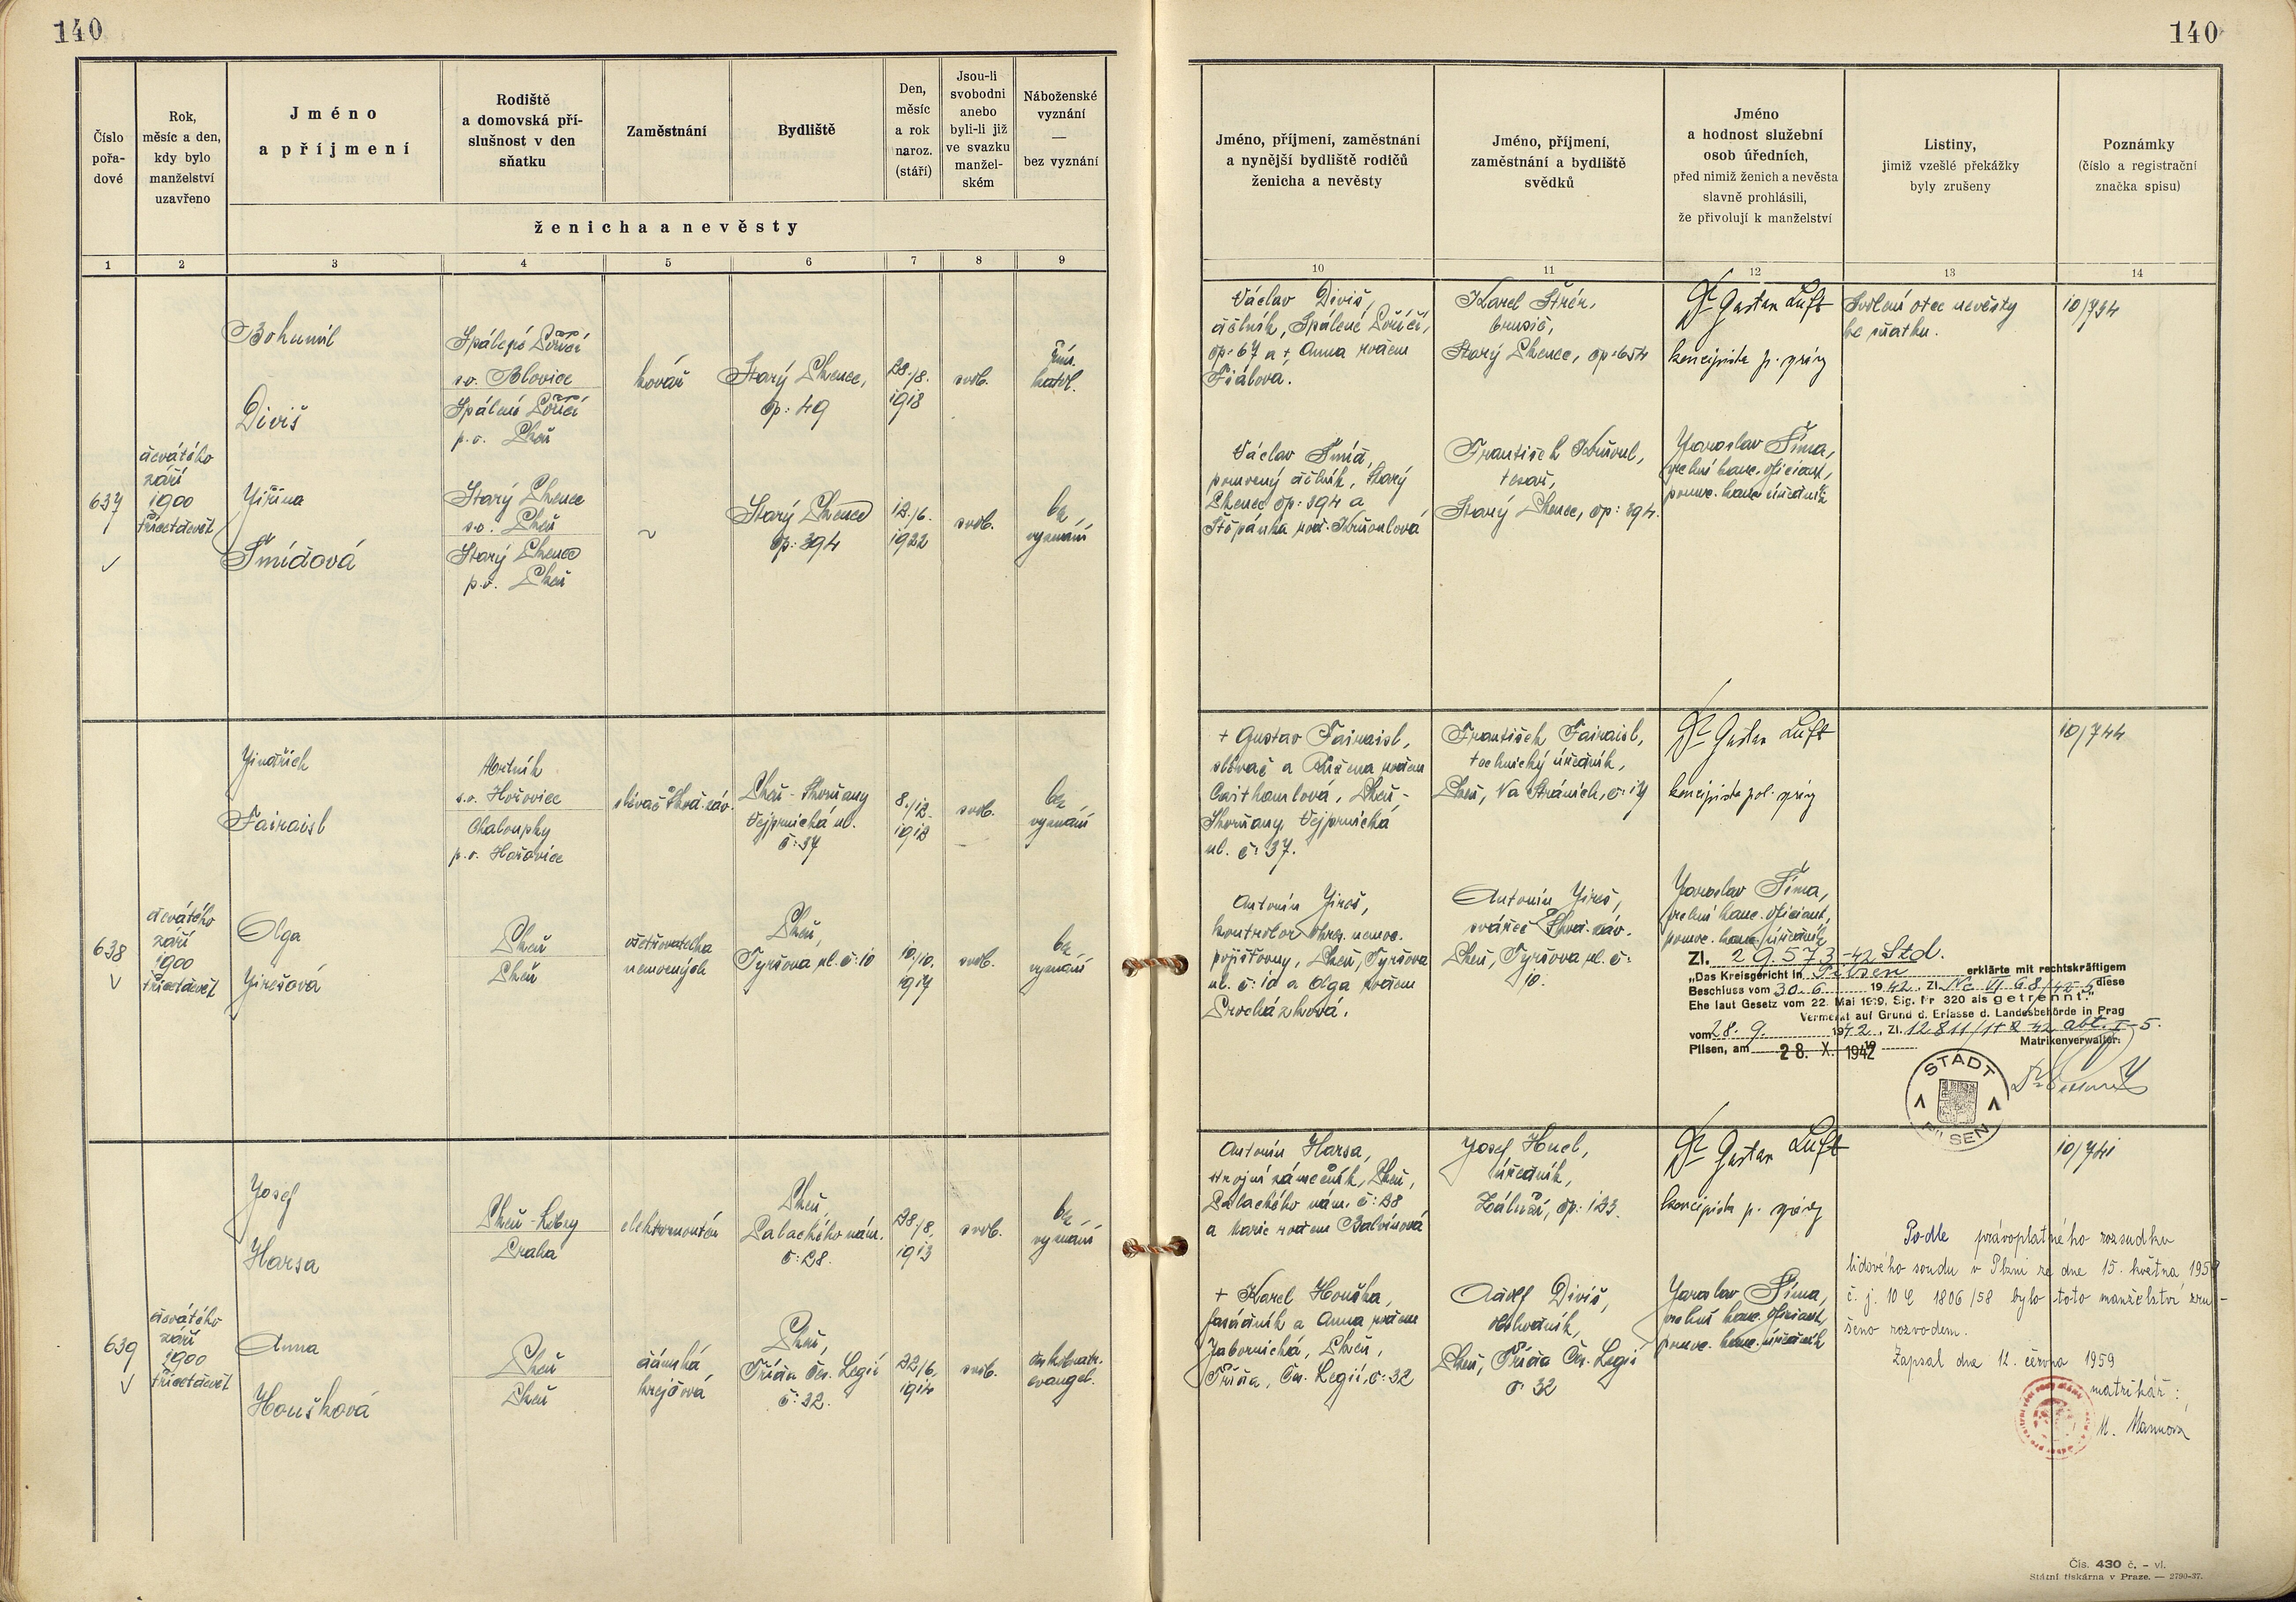 140
140
Číslo
pořa-
dové
Rok,
měsíc a den,
kdy bylo
manželství
uzavřeno
Jméno
a příjmení
Rodiště
a domovská pří-
slušnost v den
sňatku
Zaměstnání
Bydliště
Den,
měsíc
a rok
naroz.
(stáří)
Jsou-li
svobodni
anebo
byli-li již
ve svazku
manžel-
ském
Náboženské
vyznání
—
bez vyznání
ženicha a nevěsty
1 2 3 4 5 6 7 8 9
Jméno, příjmení, zaměstnání
a nynější bydliště rodičů
ženicha a nevěsty
Jméno, příjmení,
zaměstnání a bydliště
svědků
Jméno
a hodnost služební
osob úředních,
před nimiž ženich a nevěsta
slavně prohlásili,
že přivolují k manželství
Listiny,
jimiž vzešlé překážky
byly zrušeny
Poznámky
(číslo a registrační
značka spisu)
10 11 12 13 14
637
devátého
září
1900
třicetdevět
Bohumil
Diviš
Spálené Poříčí
s.o. Blovice
Spálené Poříčí
p.o. Plzeň
kovář
Starý Plzenec,
čp: 49
28./8.
1918
svob.
řím.
katol.
Jiřina
Šmídová
Starý Plzenec
s.o. Plzeň
Starý Plzenec
p.o. Plzeň
Starý Plzenec
čp: 394
12./6.
1922
svob.
bez
vyznání
Václav Diviš,
dělník, Spálené Poříčí,
čp: 67 a + Anna rodem
Fiálová.
Václav Šmíd,
pomocný dělník, Starý
Plzenec čp: 394 a
Štěpánka rod.
Karel
brusič,
Starý Plzenec, čp: 654
František
tesař,
Starý Plzenec, čp: 394.
Dr Gustav Luft
koncipista p. správy
Jaroslav Šíma,
řídící kanc. oficiant,
pomoc. kanc. úředník
Svolení otce nevěsty
ke sňatku.
10/734
638
devátého
září
1900
třicetdevět
Jindřich
Fairaisl
Mrtník
s.o. Hořovice
Chaloupky
p.o. Hořovice
slévač Škod. záv.
Plzeň - Skvrňany
Vejprnická ul.
č: 37
8./12.
1912
svob.
bez
vyznání
Olga
Jirešová
Plzeň
Plzeň
ošetřovatelka
nemocných
Plzeň,
Tyršova ul. č: 10
10./10.
1917
svob.
bez
vyznání
+ Gustav Fairaisl,
slévač a Růžena rodem
Plzeň -
Skvrňany, Vejprnická
ul. č: 37.
Antonín Jireš,
kontrolor okres. nemoc.
pojišťovny, Plzeň, Tyršova
ul. č: 10 a Olga rodem
Procházková.
František Fairaisl,
technický úředník,
Plzeň, Na Stráních, č: 14
Antonín Jireš,
svářeč Škod. záv.
Plzeň, Tyršova ul. č:
10.
Dr Gustav Luft
koncipista pol. správy
Jaroslav Šíma,
řídící kanc. oficiant,
pomoc. kanc. úředník
10/744
Zl. 29.573 -42 Std.
„Das Kreisgericht in Pilsen erklärte mit rechtskräftigem
Beschluss vom 30. 6. 1942, Zl. Nc VI 68/42-5 diese
Ehe laut Gesetz vom 22. Mai 1919, Slg. Nr 320 als getrennt."
Vermerkt auf Grund d. Erlasse d. Landesbehörde in Prag
vom 28. 9. 1942, Zl. abt. I-5.
Pilsen, am 28. X. 1942 Matrikenverwalter:
STADT
PILSEN
639
devátého
září
1900
třicetdevět
Josef
Harsa
Plzeň - Lobzy
Praha
elektromontér
Plzeň,
Palackého nám.
č: 28.
28./8.
1913
svob.
bez
vyznání
Anna
Houšková
Plzeň
Plzeň
dámská
krejčová
Plzeň,
Třída Čs. Legií
č: 32.
22./6.
1914
svob.
českobratr.
evangel.
Antonín Harsa,
strojní zámečník, Plzeň,
Palackého nám. č: 28
a Marie rodem Balvínová
+ Karel Houška,
a Anna rodem
Javornická, Plzeň,
Třída Čs. Legií, č: 32
Josef
úředník,
čp: 123.
Adolf Diviš,
obchodník,
Plzeň, Třída Čs. Legií
č: 32
Dr Gustav Luft
koncipista p. správy
Jaroslav Šíma,
řídící kanc. oficiant,
pomoc. kanc. úředník
10/741
Podle právoplatného rozsudku
lidového soudu v Plzni ze dne 15. května 1959
č. j. 10 C 1806/58 bylo toto manželství zru-
šeno rozvodem.
Zapsal dne 12. června 1959
matrikář:
M. Mannová
Čís. 430 č. – vl.
Státní tiskárna v Praze. — 2790-37.